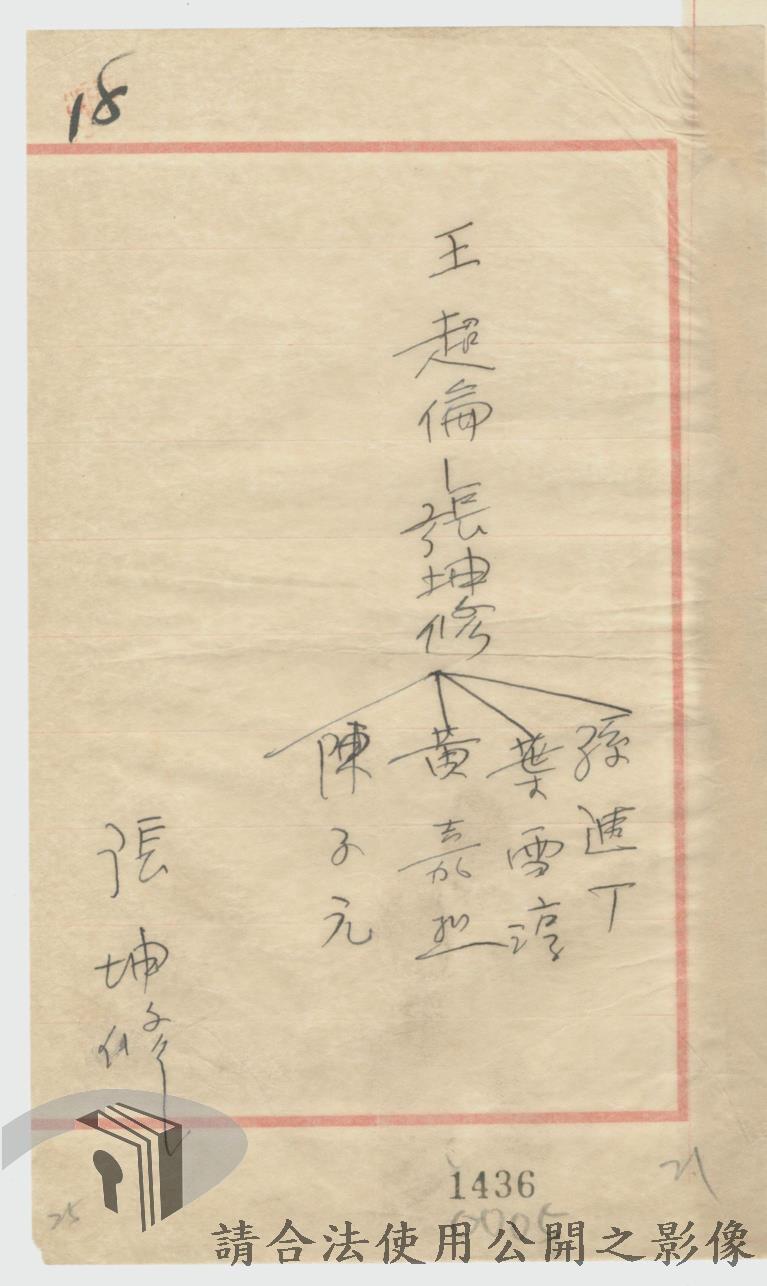 18
王超倫—張坤修
孫進丁
葉雪淳
黃嘉烈
陳子元
張坤修
1436
21
25
請合法使用公開之影像